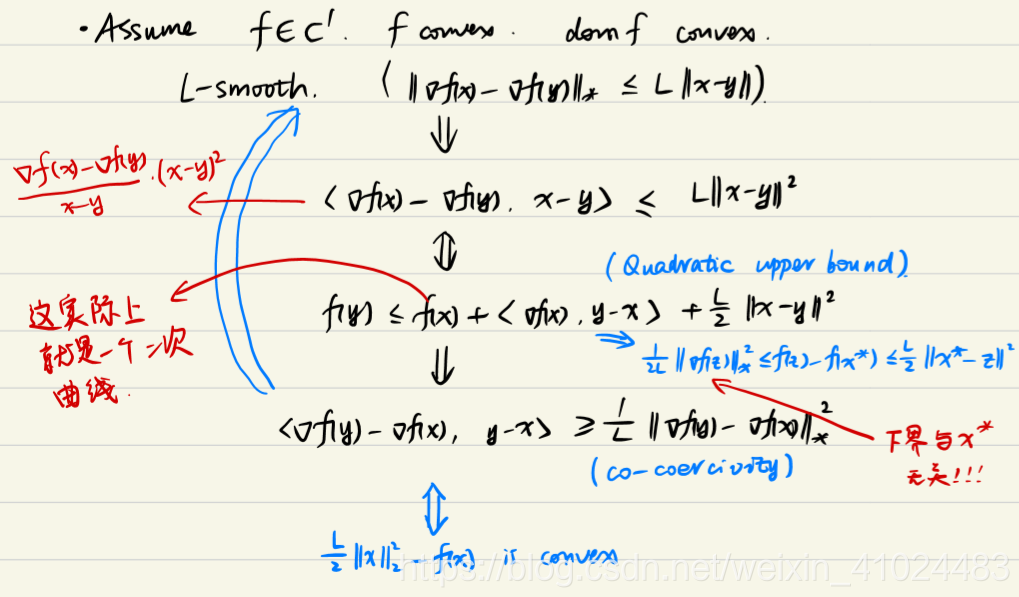 • Assume f∈C¹. f convex. domf convex.
L-smooth. (‖∇f(x)-∇f(y)‖* ≤ L‖x-y‖).
⇓
∇f(x)-∇f(y) / x-y · (x-y)²
⟨∇f(x)-∇f(y), x-y⟩ ≤ L‖x-y‖²
⇕
(Quadratic upper bound)
f(y) ≤ f(x)+⟨∇f(x), y-x⟩ + L/2 ‖x-y‖²
这实际上
就是一个二次
曲线.
⇒ 1/2L ‖∇f(z)‖*² ≤ f(z)-f(x*) ≤ L/2 ‖x*-z‖²
⇓
⟨∇f(y)-∇f(x), y-x⟩ ≥ 1/L ‖∇f(y)-∇f(x)‖*²
(co-coercivity)
下界与x*
无关!!!
⇕
L/2 ‖x‖₂² - f(x) is convex
https://blog.csdn.net/weixin_41024483